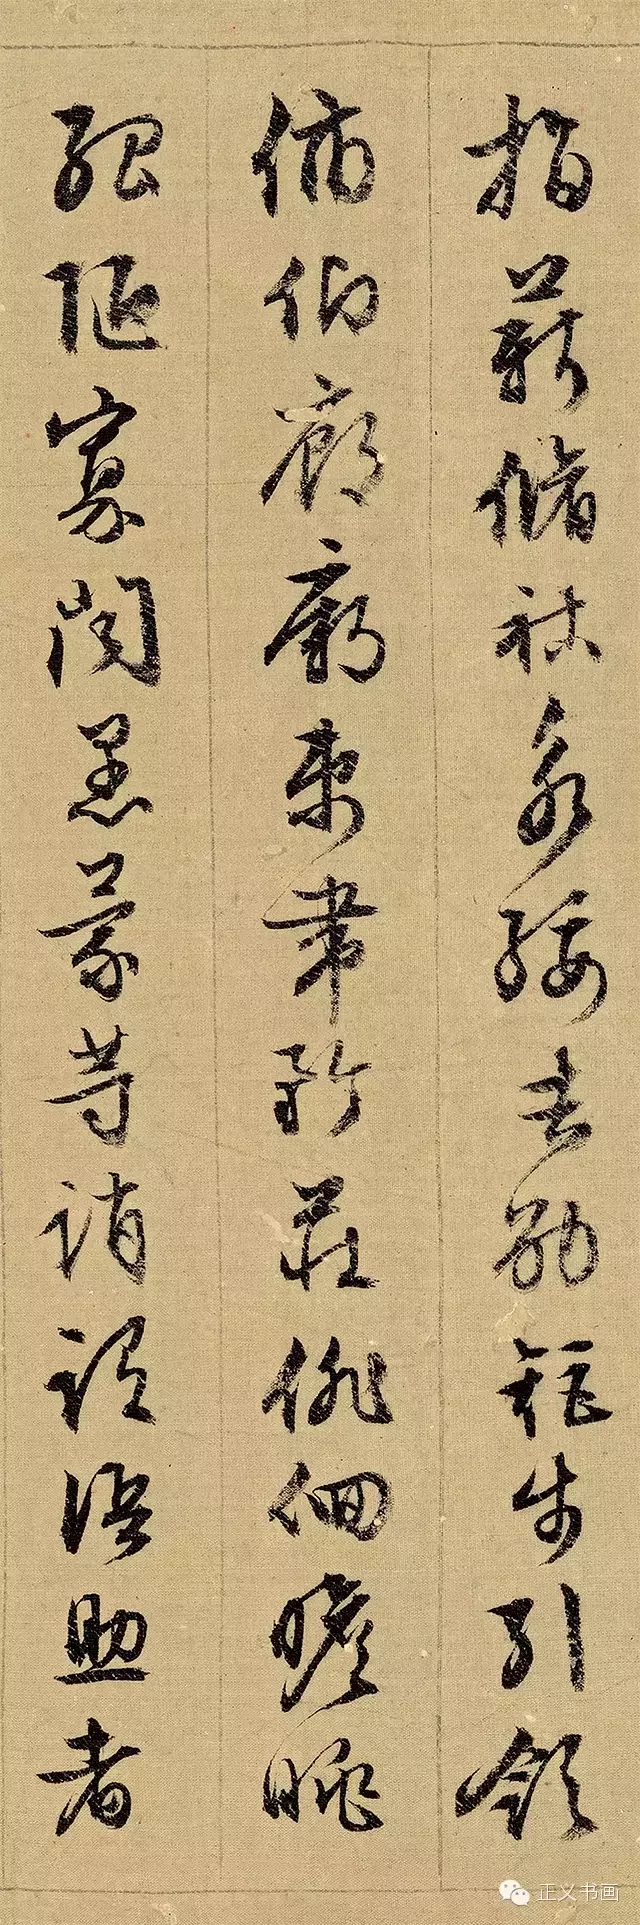 指薪修祜永綏吉劭矩步引領
俯仰廊廟束帶矜莊俳佪瞻眺
孤陋寡聞愚蒙等誚謂語助者
正义书画